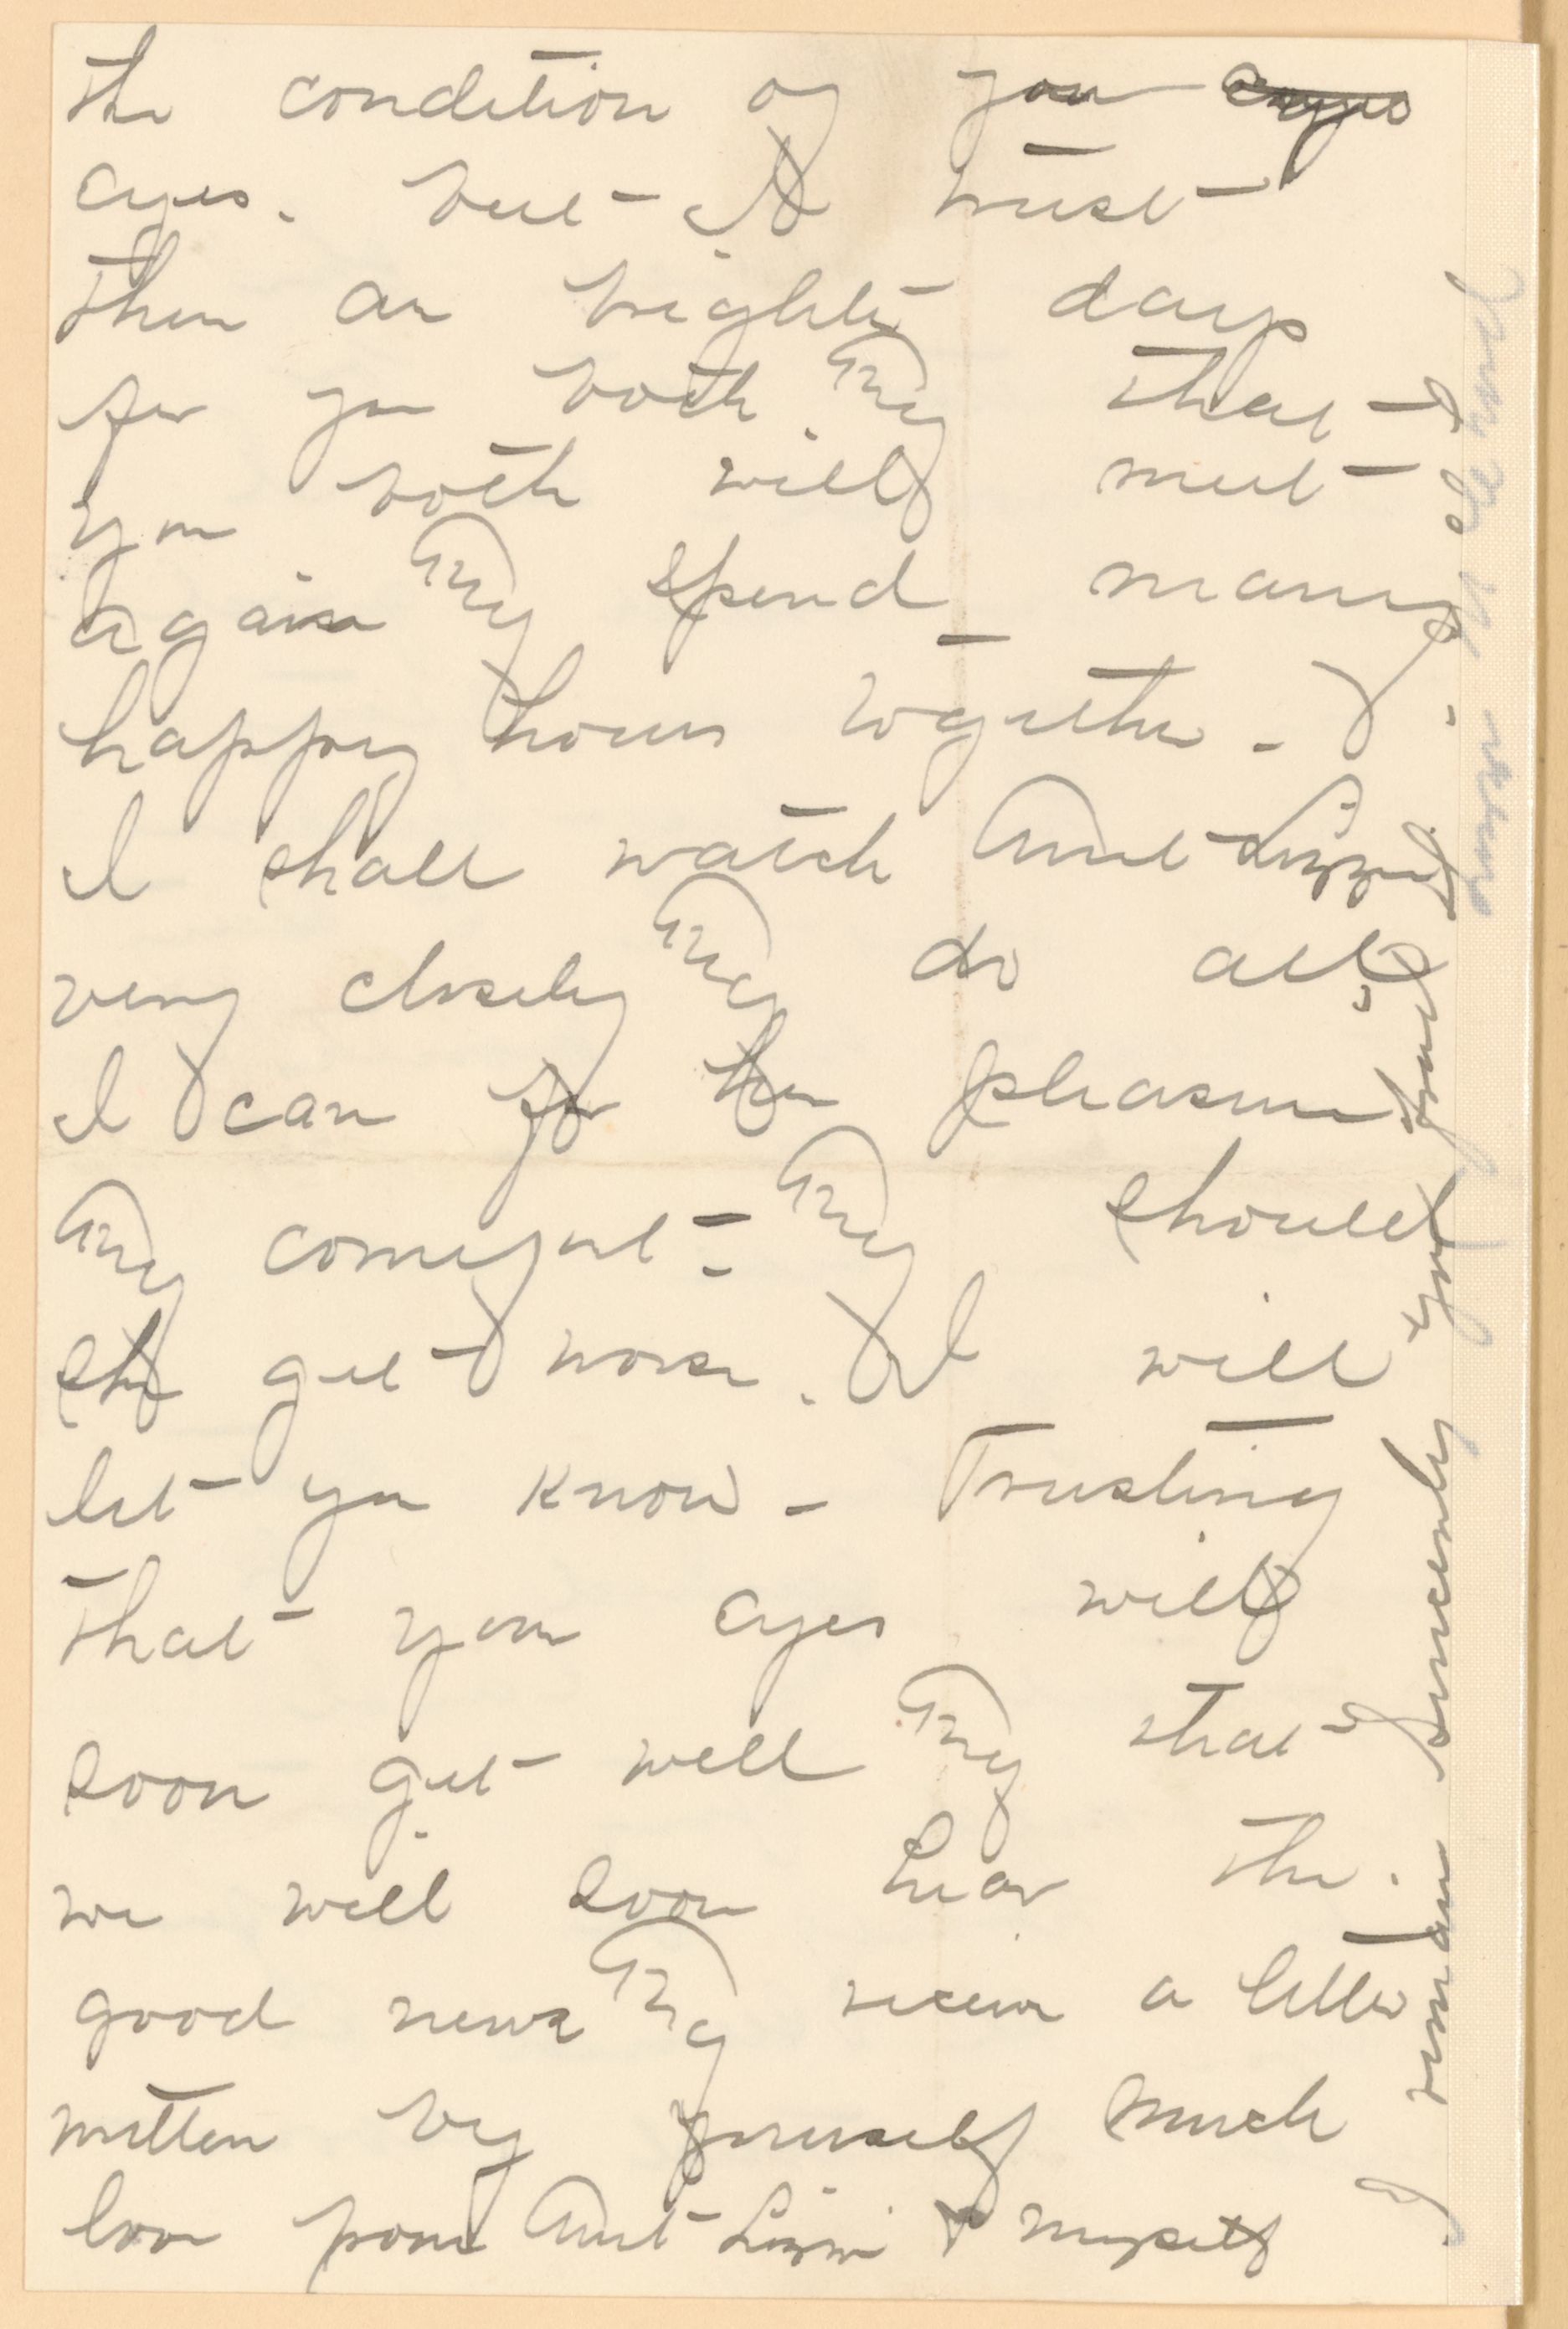 the condition of your eyes
eyes. but I trust
there are brighter days
for you both, & that
you both will meet
again & spend many
happy hours together.
I shall watch Aunt Lizzie
very closely & do all
I can for her pleasure
& comfort & should
she get worse. I will
let you know. Trusting
that your eyes will
soon get well & that
we will soon hear the
good news & receive a letter
written by yourself Much
love from Aunt Lizzie & myself
I remain sincerely your friend